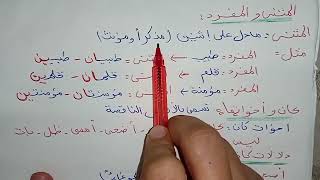 المثنى والمفرد:
المثنى: مادل على اثنين (مذكرا ومؤنثا)
مثل: المفرد: طبيب ← المثنى: طبيبان - طبيبين
المفرد: قلم ← قلمان - قلمين
المفرد: مؤمنة ← مؤمنتان - مؤمنتين
كان وأخواتها: تسمى بالأفعال الناقصة
أخوات كان: أضحى - أمسى - ظل - بات
ليس
دلالات كا